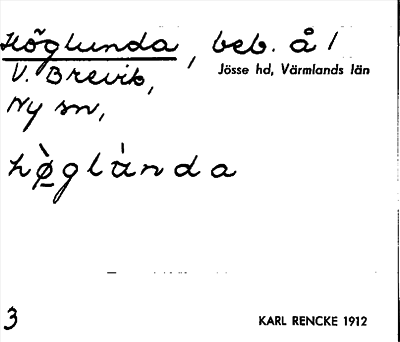 Höglunda, beb. å /
V. Brevik, Jösse hd, Värmlands län
Ny sn,
hø̀glànda
3 KARL RENCKE 1912